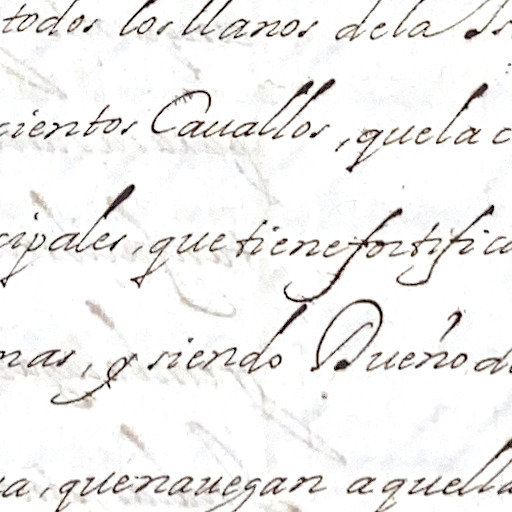 todos los llanos de la Is
cientos Cauallos, que la c
cipales, que tiene fortifica
mas, y siendo Dueño de
ua, que nauegan aquella